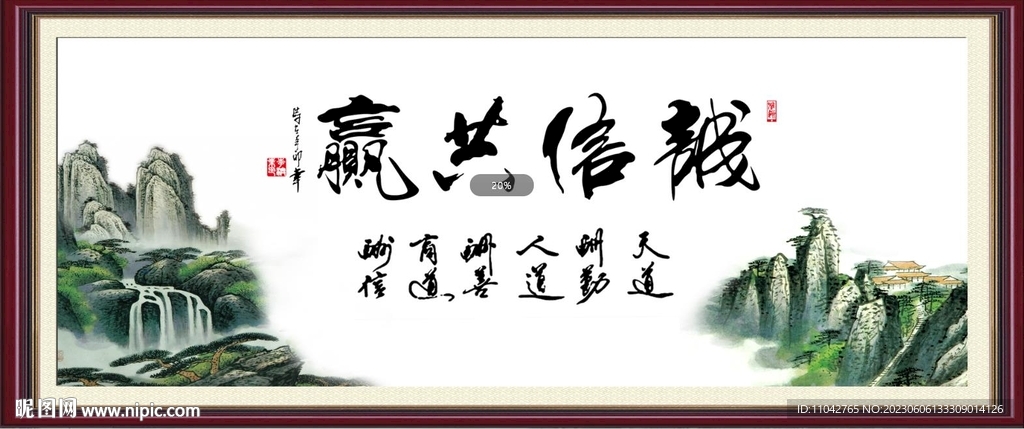 誠信共贏
天道
酬勤
人道
酬善
商道
酬信
時在辛卯年
20%
昵图网 www.nipic.com
ID:11042765 NO:20230606133309014126